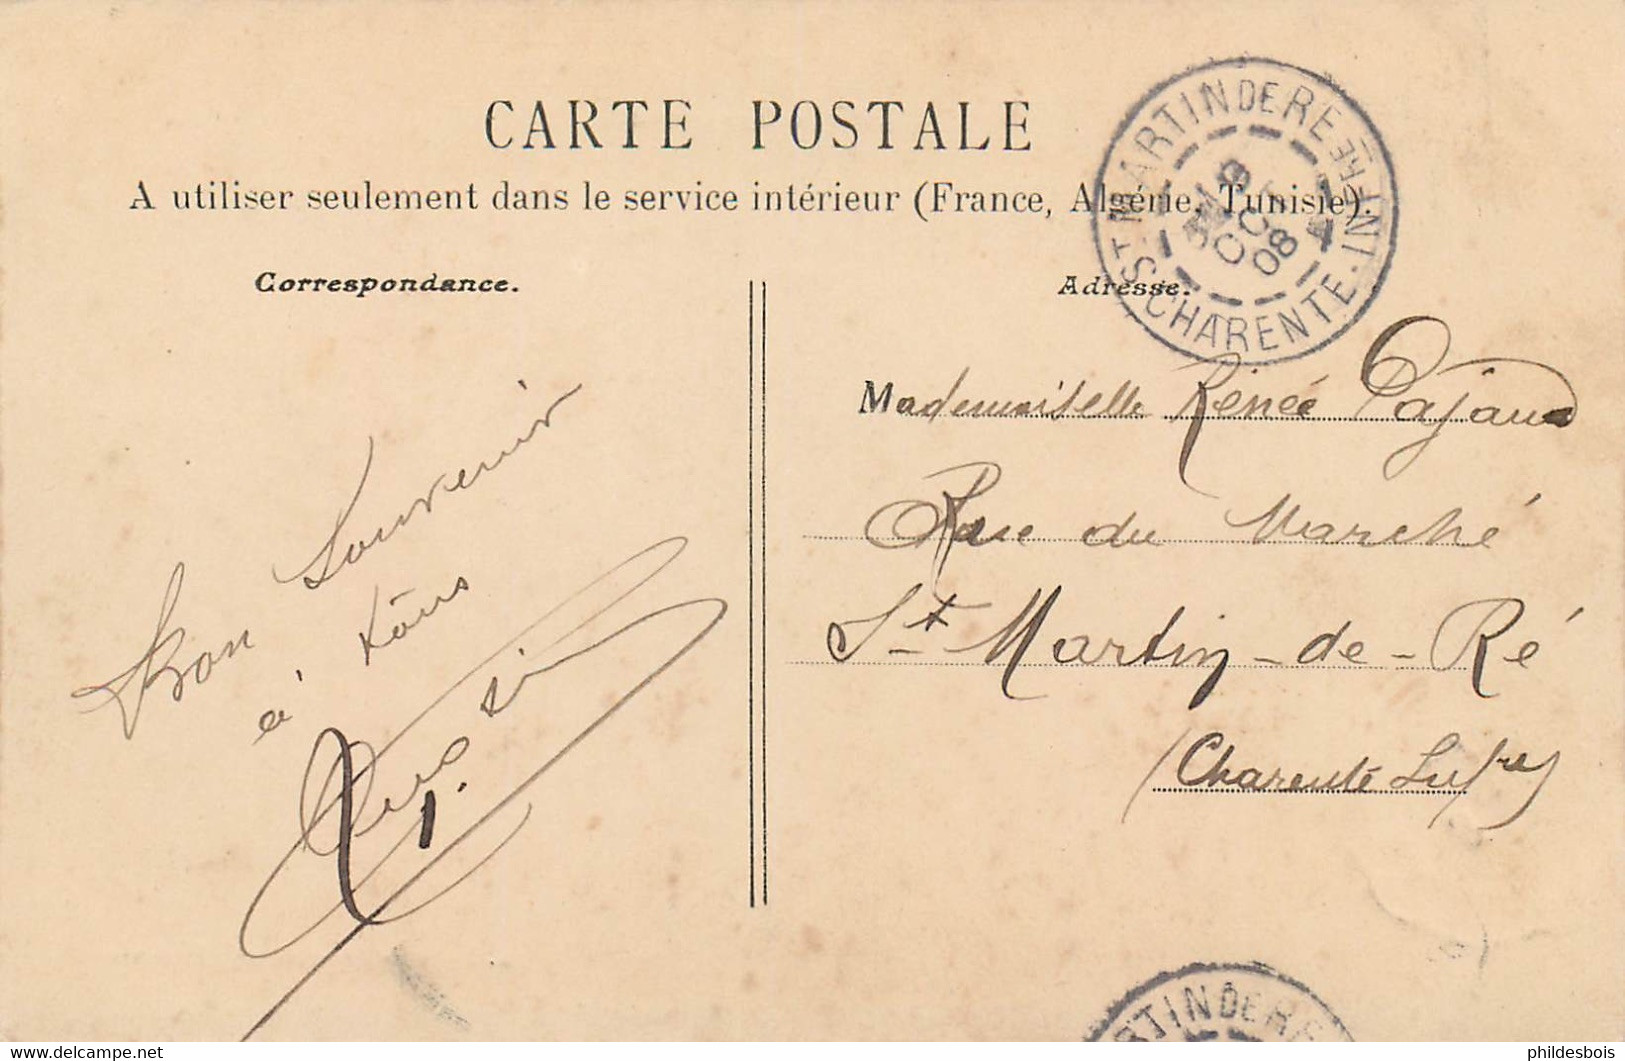 CARTE POSTALE
A utiliser seulement dans le service intérieur (France, Algérie, Tunisie).
ST MARTIN DE RE
CHARENTE-INFRE
OCT
08
Correspondance.
Bon Souvenir
à tous
Adresse.
Mademoiselle Rénée Pajaud
Rue du Marché
St-Martin-de-Ré
(Charente Infre)
MARTIN DE RE
delcampe.net
phildesbois